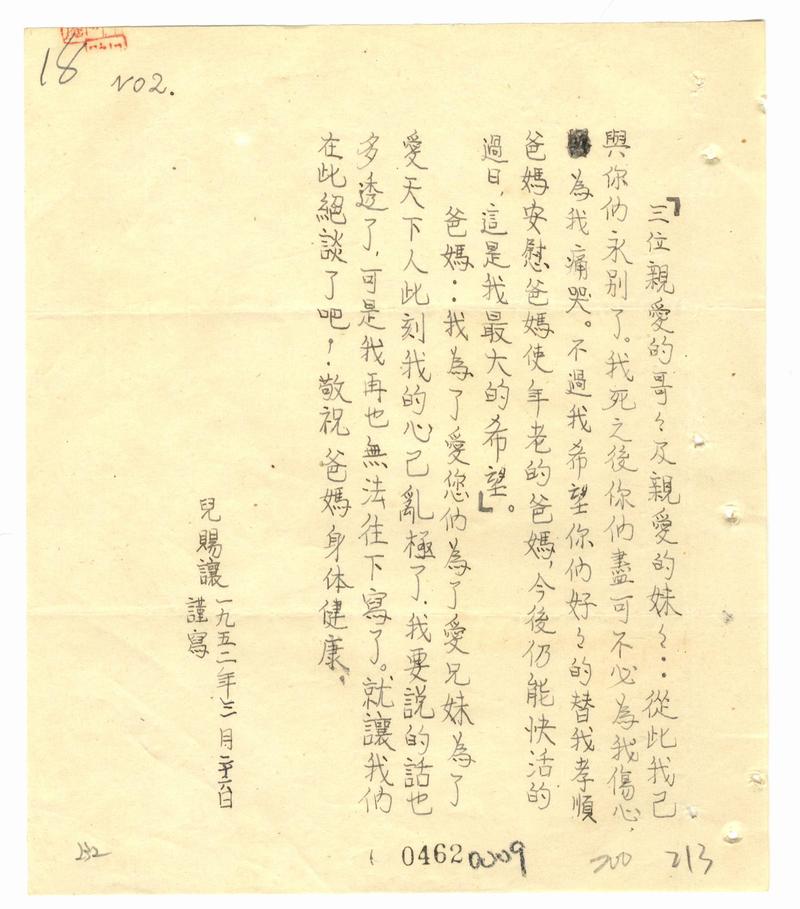 18
NO2.
「三位親愛的哥々及親愛的妹々：從此我已
與你們永別了。我死之後你們儘可不必為我傷心，
為我痛哭。不過我希望你們好々的替我孝順
爸媽安慰爸媽使年老的爸媽，今後仍能快活的
過日，這是我最大的希望」。
爸媽：我為了愛您們為了愛兄妹為了
愛天下人此刻我的心已亂極了，我要說的話也
多透了，可是我再也無法往下寫了。就讓我們
在此絕談了吧！敬祝爸媽身体健康。
兒賜讓
謹寫
一九五二年三月二十六日
232
0462
0009
200
213